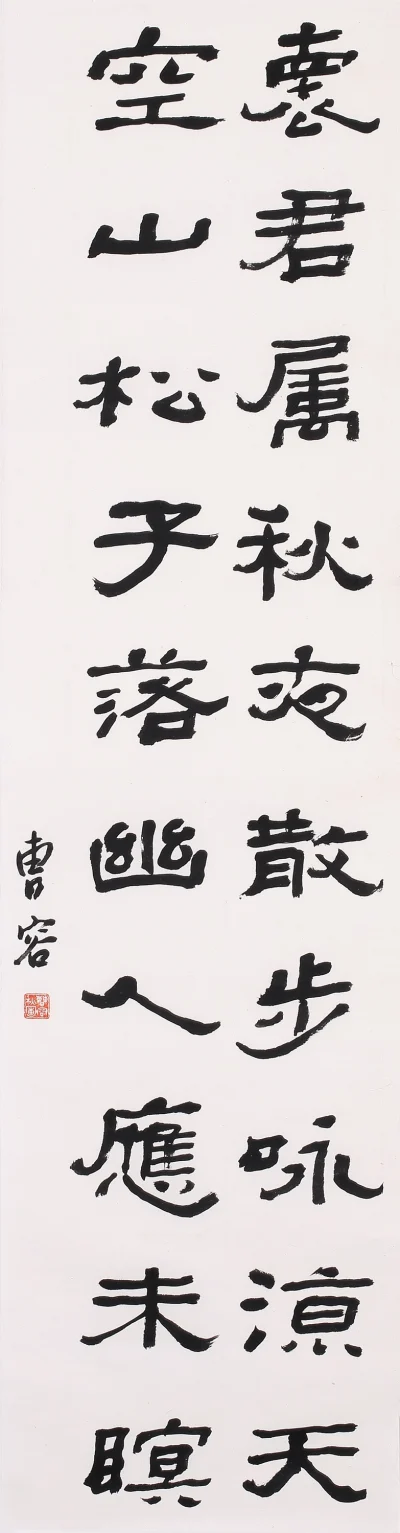 褱君属秋夜散步咏涼天
空山松子落幽人應未瞑
曹容